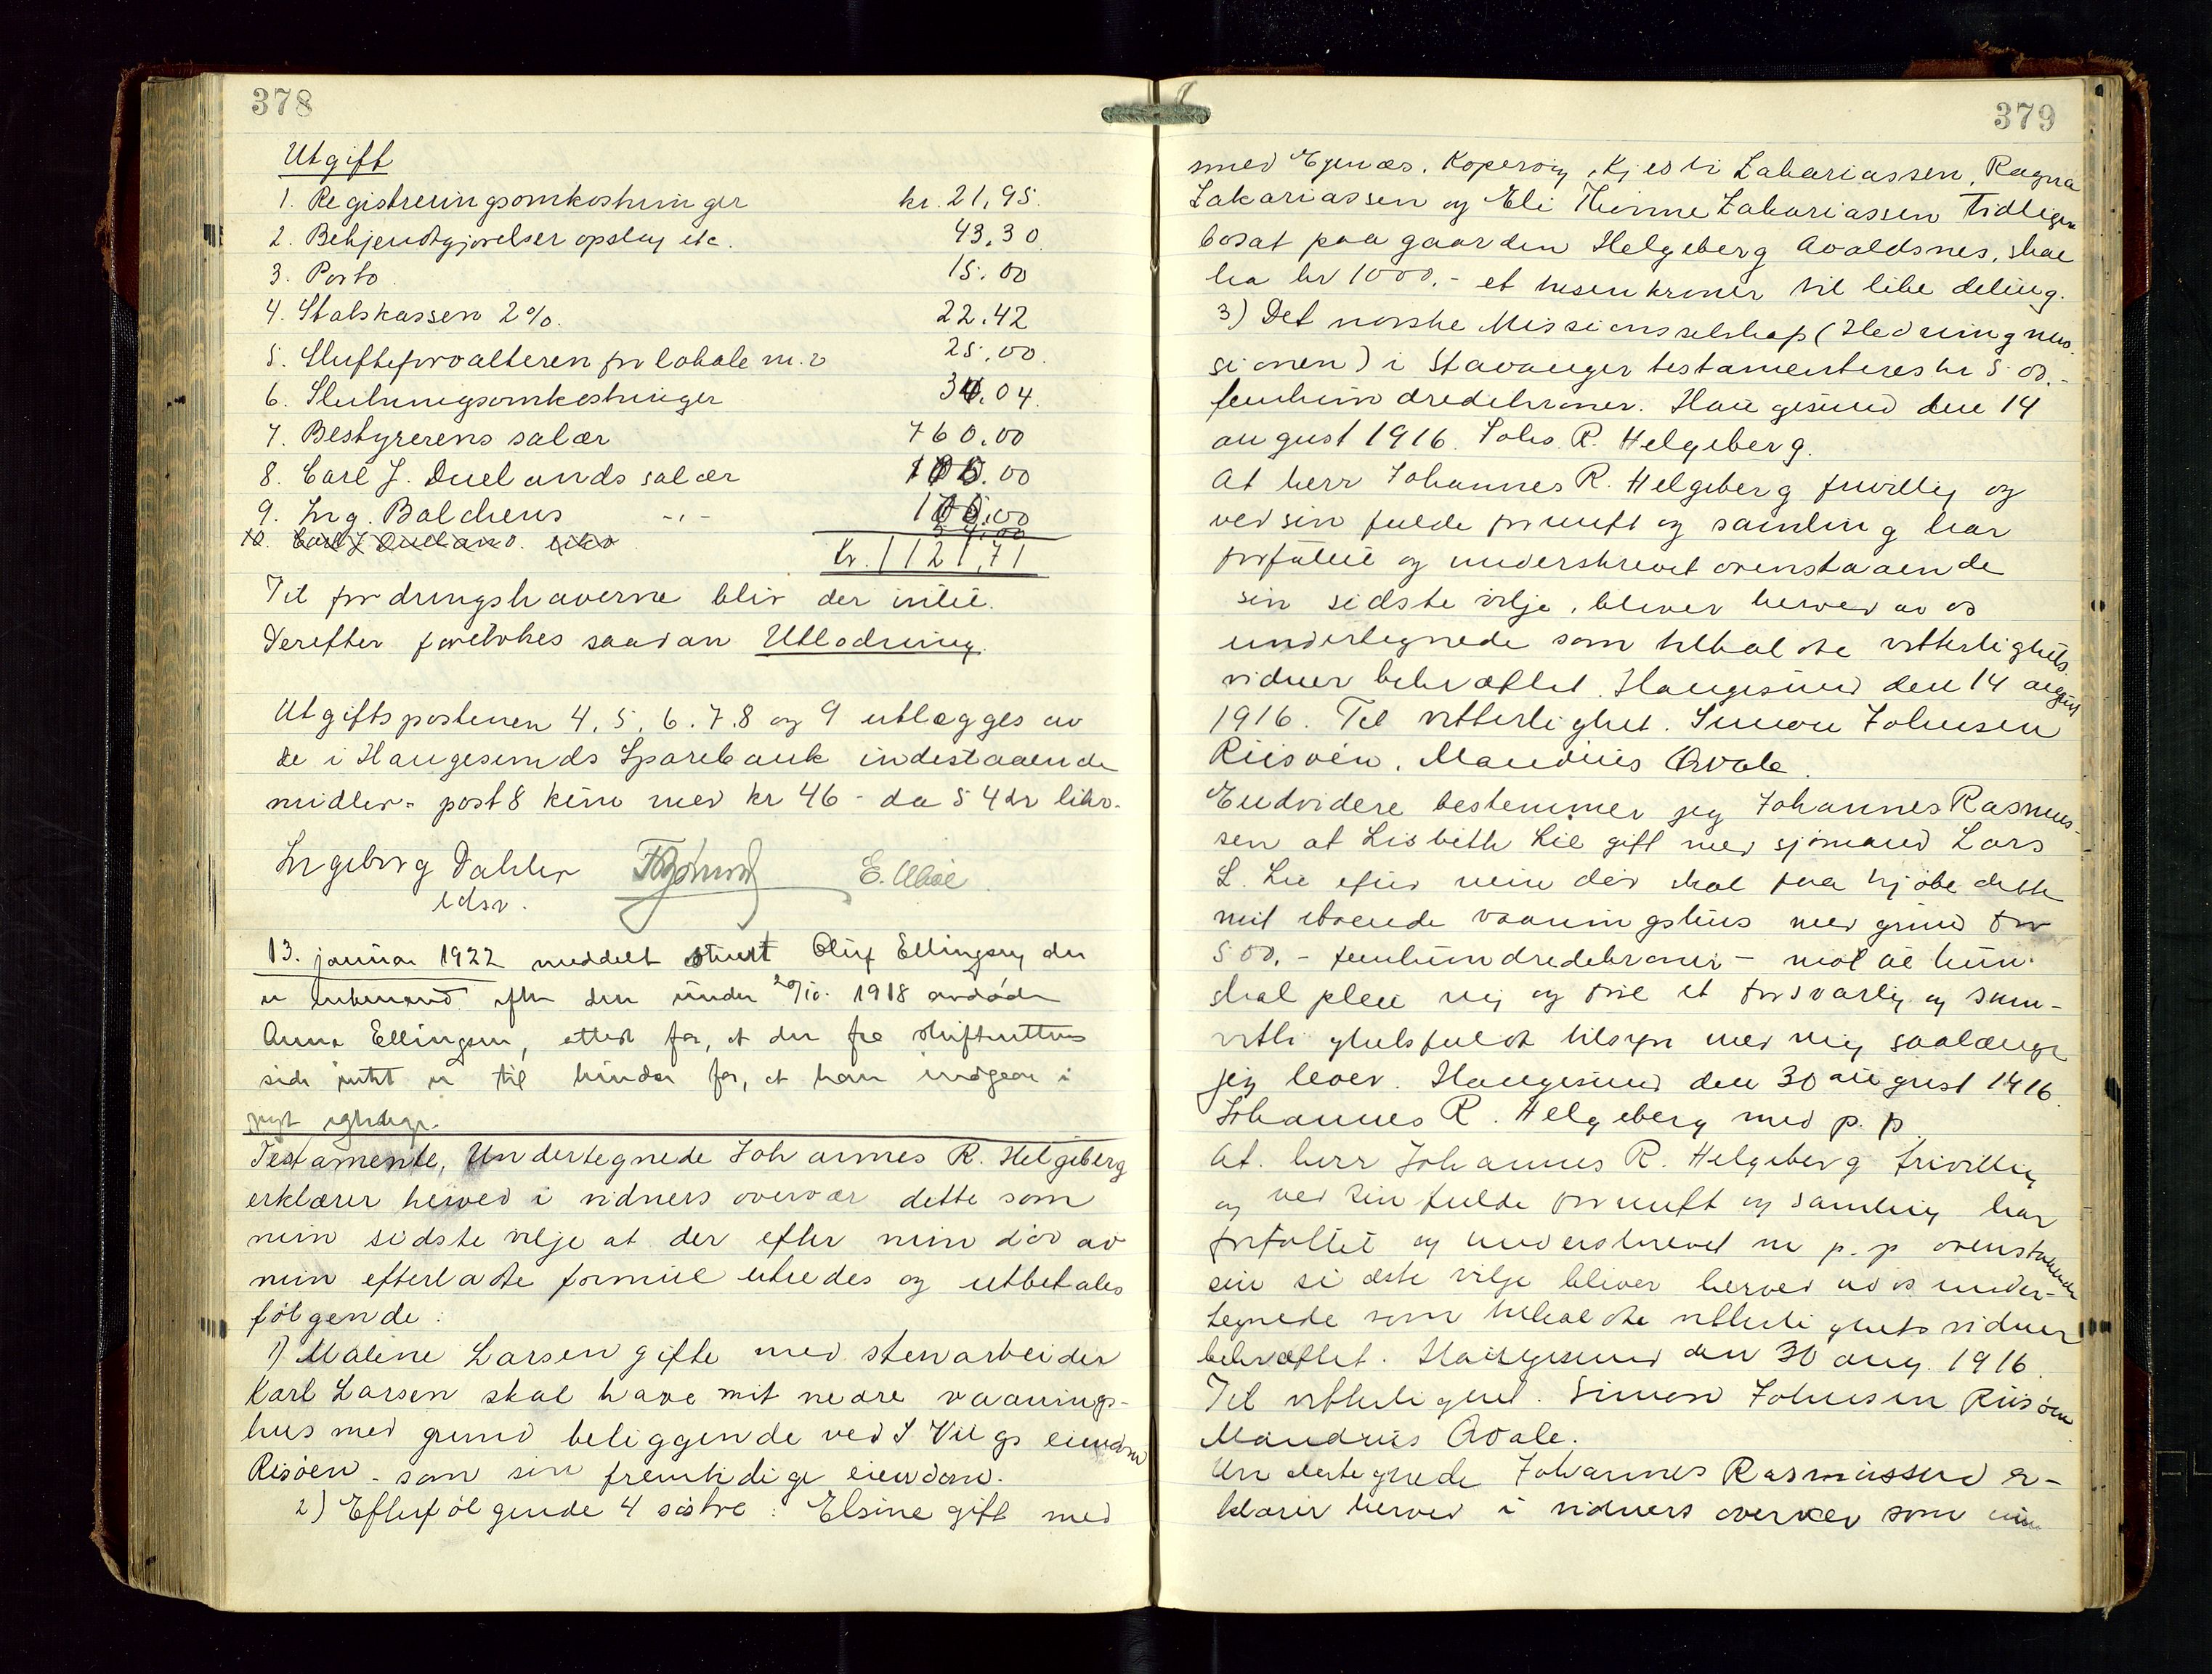 378
Utgift
1. Registreringsomkostninger kr. 21,95.
2. Bekjendtgjørelser opslag etc. 43,30
3. Porto 15.00
4. Statskassen 2%. 22.42
5. Skifteforvalteren for lokale m.v 25.00.
6. Slutningsomkostninger 34.04.
7. Bestyrerens salær 760.00
8. Carl J. Duelands salær 100.00
9. Ing. Balchens -"- 100.00
10. Carl J. Dueland
kr. 1121,71
Til fordringshaverne blir der intet.
Derefter foretokes saadan Utlodning.
Utgiftspostenen 4. 5. 6. 7. 8 og 9 utlægges av
de i Haugesunds Sparebank indestaaende
midler - post 8 kun med kr 46 - da 54 kr
Ingeborg Dahler
edsv.
13. januar 1922 meddelt stuert Oluf Ellingsen der
er enkemand efter den under 20/10. 1918 avdøde
Anna Ellingsen, attest for, at der fra skifterettens
side intet er til hinder for, at han indgaar i
nyt egteskap.
Testamente, Undertegnede Johannes R. Helgeberg
erklærer herved i vidners overvær dette som
min sidste vilje at der efter min død av
min efterladte formue utredes og utbetales
følgende:
1) Maline Larsen gifte med stenarbeider
Karl Larsen skal have mit nedre vaanings-
hus med grund beliggende ved S Viigs eiendom
Risøen - som sin fremtidige eiendom.
2) Efterfølgende 4 søstre: Elsine gift med
379
smed Egenæs. Kopervig, Kjesti Zakariassen, Ragna
Zakariassen og Eli Thinne Zakariassen tidligere
bosat paa gaarden Helgeberg Avaldsnes, skal
ha kr 1000.- et tusen kroner til like deling.
3) Det norske Missionsselskap (Hedningmis-
sionen) i Stavanger testamenteres kr 500.-
femhundredekroner. Haugesund den 14
august 1916. Johs. R. Helgeberg.
At herr Johannes R. Helgeberg frivillig og
ved sin fulde fornuft og samling har
forfattet og underskrevet ovenstaaende
sin sidste vilje, bliver herved av os
undertegnede som tilkaldte vitterligheds
vidner bekræftet. Haugesund den 14 august
1916. Til vitterlighet. Simon Johnsen
Riisøen. Mandrius Avale.
Endvidere bestemmer jeg Johannes Rasmus-
sen at Lisbeth Lie gift med sjømand Lars
L. Lie efter min død skal faa kjøbe dette
mit iboende vaaningshus med grund for
500.- femhundredekroner - mot at hun
skal pleie mig og føre et forsvarlig og sam-
vittighetsfuldt tilsyn med mig saalænge
jeg lever. Haugesund den 30 august 1916.
Johannes R. Helgeberg med p. p.
At. herr Johannes R. Helgeberg frivillig
og ved sin fulde fornuft og samling har
forfattet og underskrevet m p. p ovenstaaende
sin sidste vilje bliver herved av os under-
tegnede som tilkaldte vitterlighets vidner
bekræftet. Haugesund den 30 aug. 1916.
Til vitterlighet. Simon Johnsen Riisøen
Mandrius Avale.
Undertegnede Johannes Rasmussen er-
klærer herved i vidners overvær som min